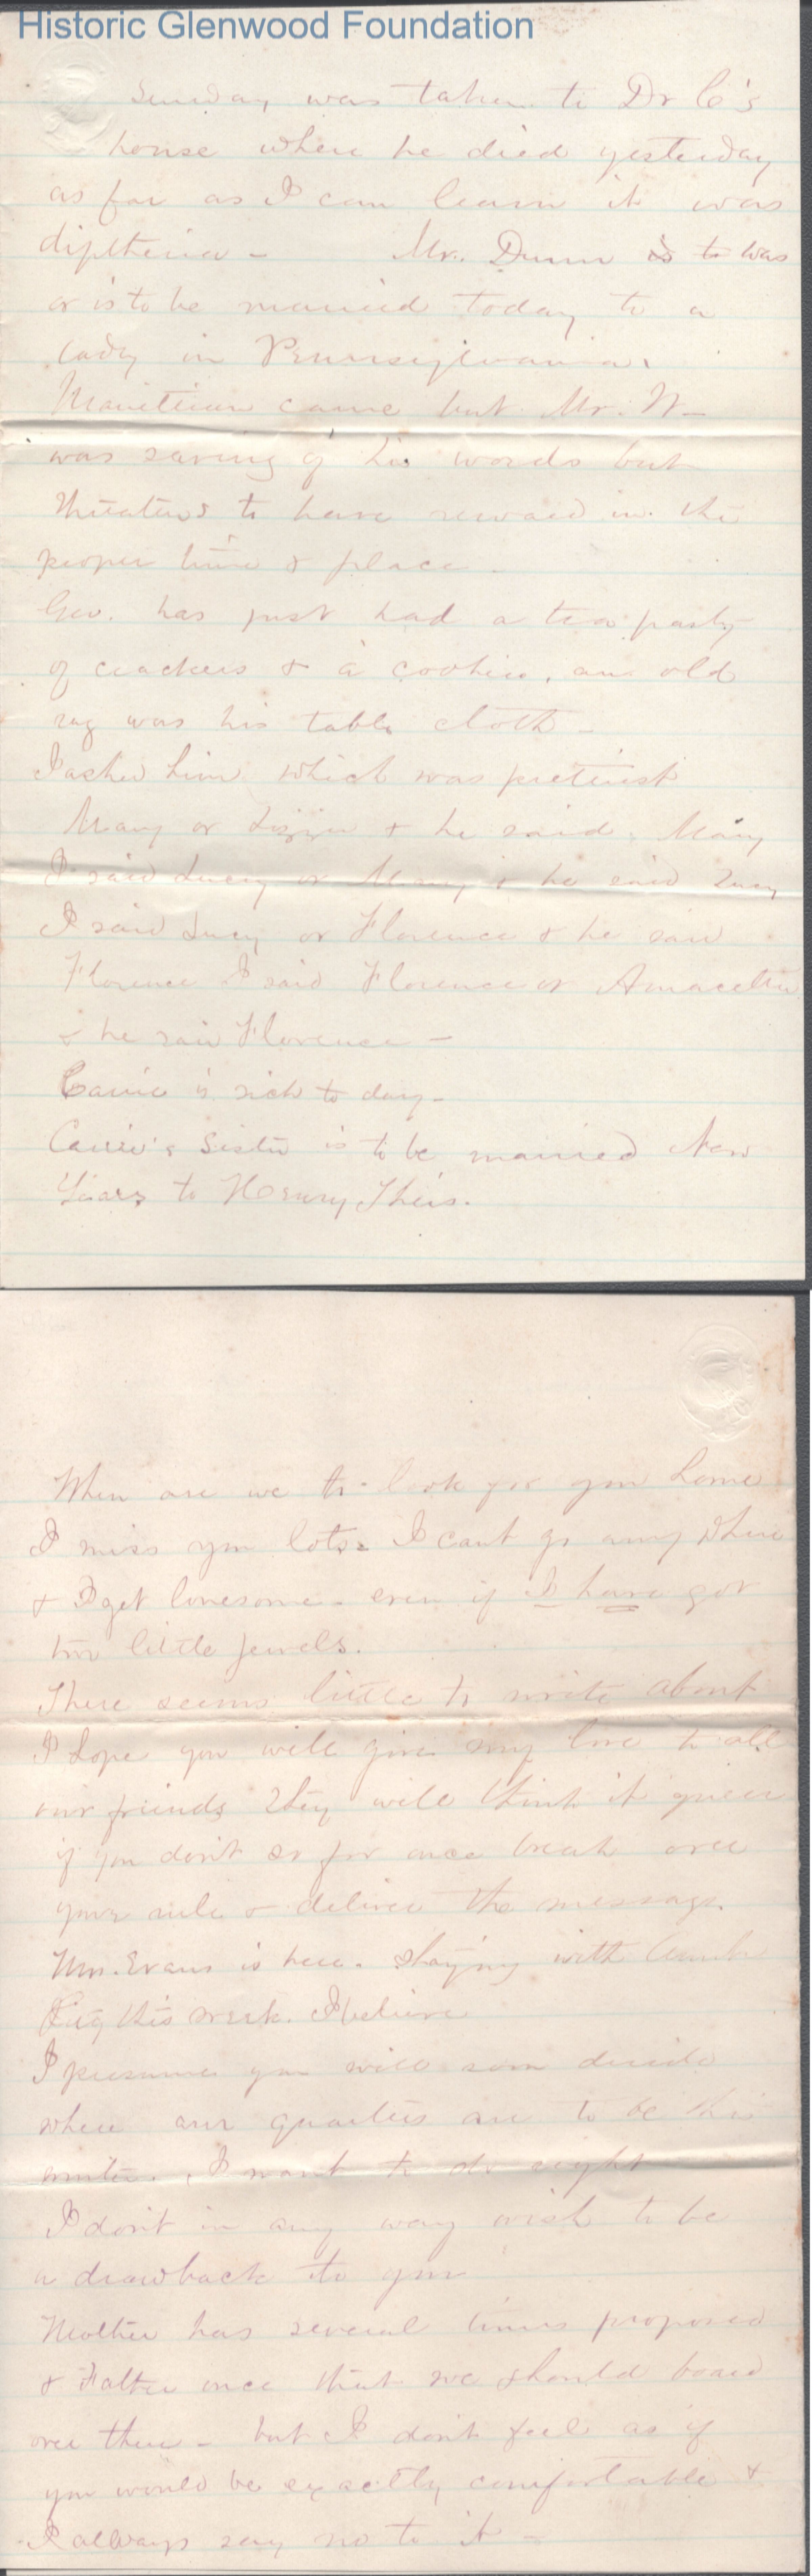 Historic Glenwood Foundation
Sunday, was taken to Dr C's
house where he died yesterday
as far as I can learn it was
diptheria - Mr. Dunn is to was
or is to be married today to a
lady in Pennsylvania.
came but Mr. W-
was saving of his words but
threatens to have reward in the
proper time & place.
Geo. has just had a tea party
of crackers & a cookie, an old
rag was his table cloth -
I asked him which was prettiest
Mary or Lizzie & he said Mary
I said Lucy or Mary & he said Lucy
I said Lucy or Florence & he said
Florence I said Florence or
& he said Florence -
Carrie is sick to day -
Carrie's Sister is to be married New
Years to Henry Theis.
When are we to look for you home
I miss you lots. I cant go any where
& I get lonesome - even if I have got
two little jewels.
There seems little to write about
I hope you will give my love to all
our friends they will think it queer
if you don't so for once break over
your rule & deliver the message.
Mrs. Evans is here. staying with
this week. I believe
I presume you will soon decide
where our quarters are to be this
winter. I want to do right
I don't in any way wish to be
a drawback to you
Mother has several times proposed
& Father once that we should board
over there - but I don't feel as if
you would be exactly comfortable &
I always say no to it -